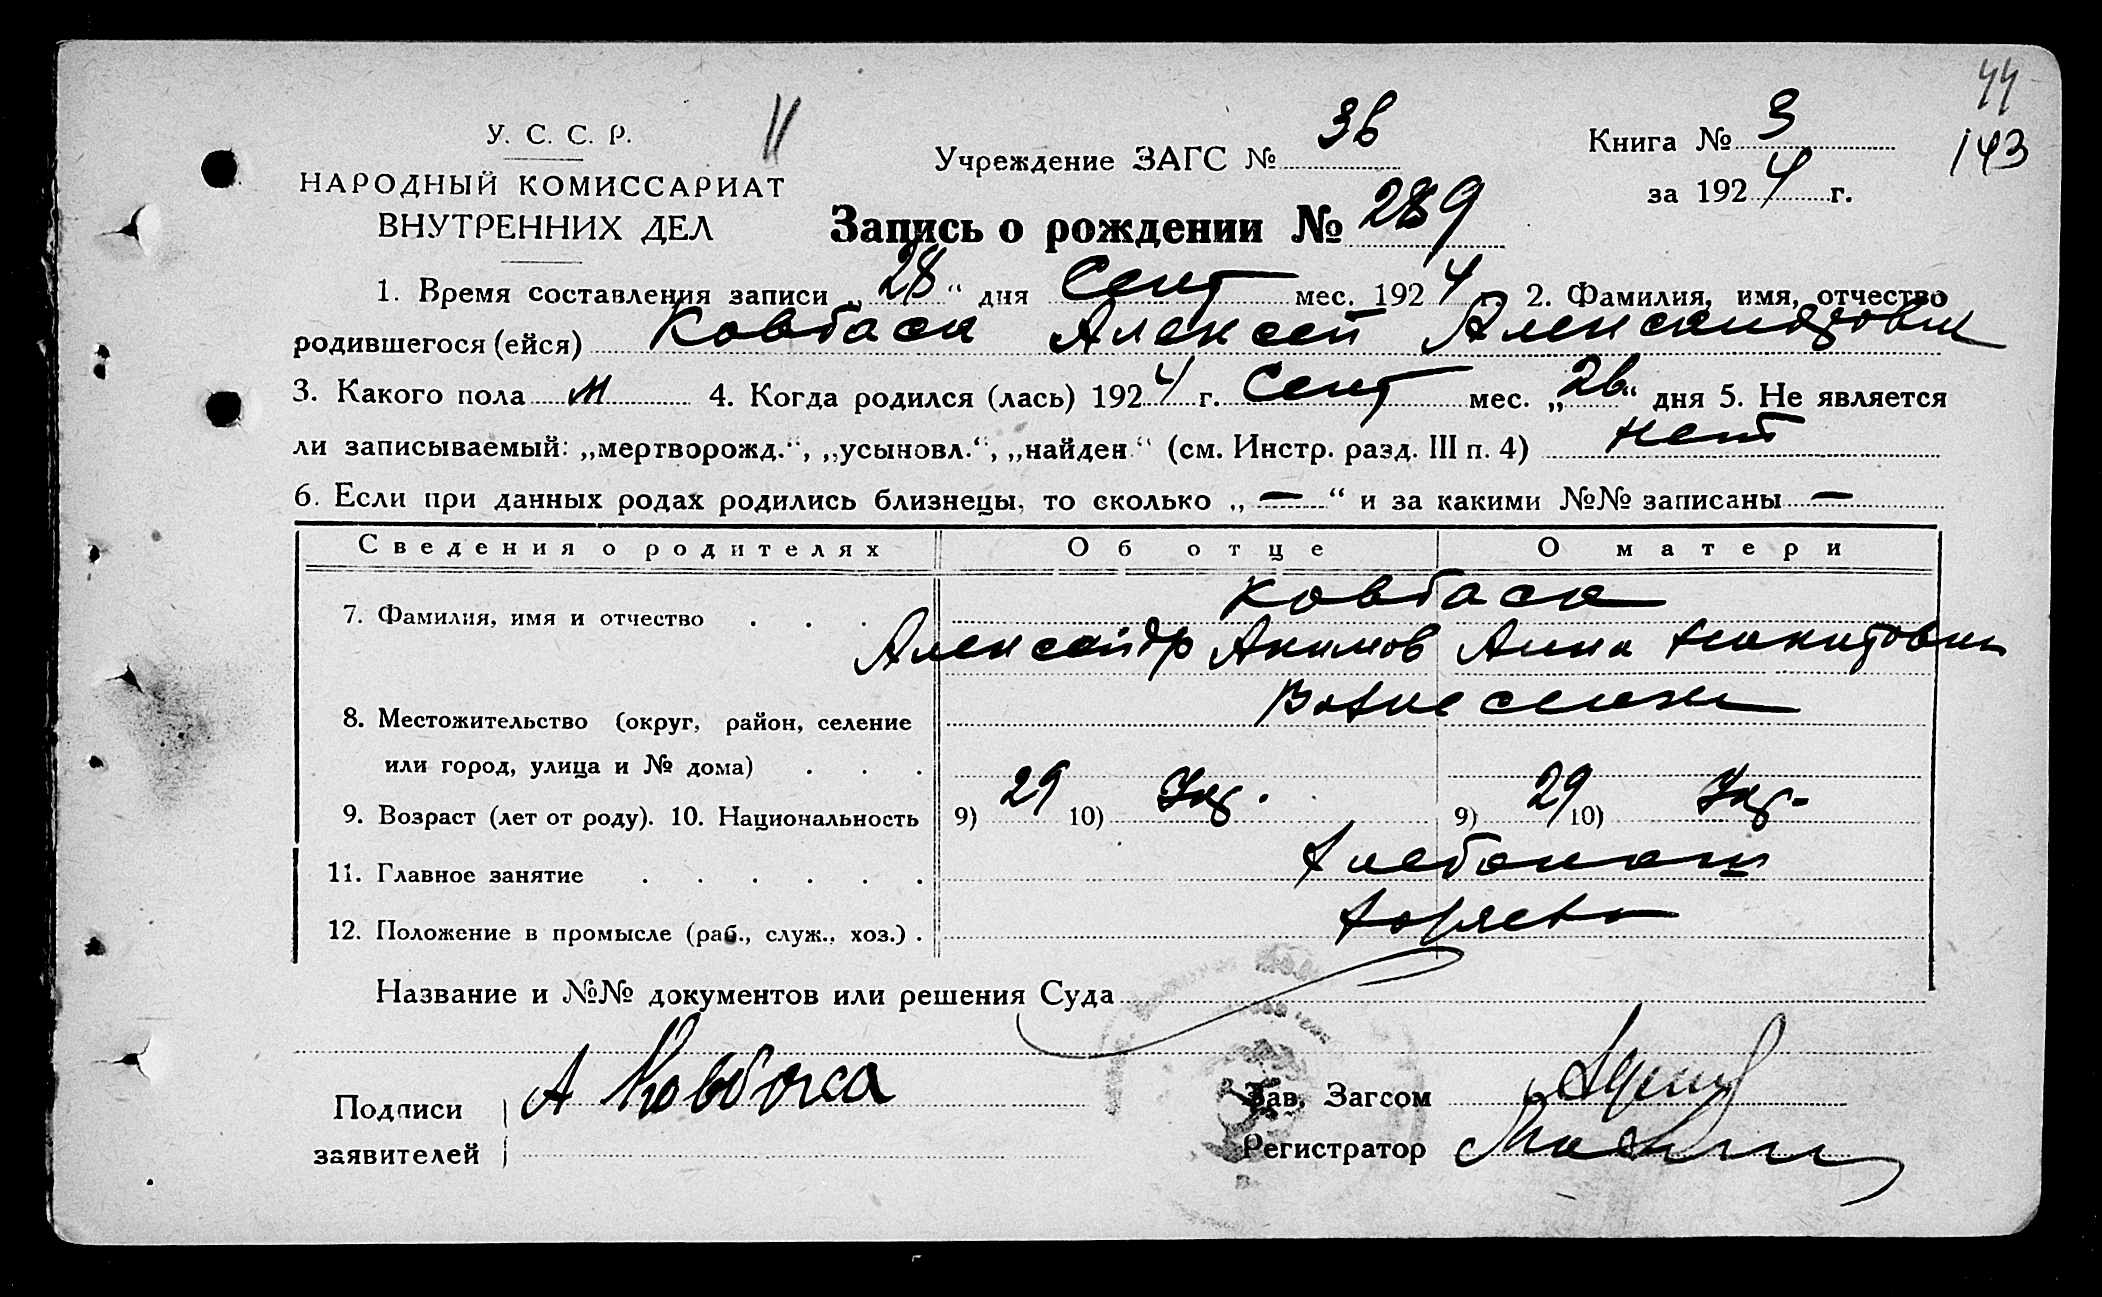 44
143
11
У. С. С. Р.
НАРОДНЫЙ КОМИССАРИАТ
ВНУТРЕННИХ ДЕЛ
Учреждение ЗАГС № 36
Книга № 3
за 1924 г.
Запись о рождении № 289
1. Время составления записи „28“ дня Сент мес. 1924 2. Фамилия, имя, отчество
родившегося (ейся) Ковбаса Алексей Александрович
3. Какого пола м 4. Когда родился (лась) 1924 г. Сент мес. „26“ дня 5. Не является
ли записываемый: „мертворожд.“, „усыновл.“, „найден.“ (см. Инстр. разд. III п. 4) нет
6. Если при данных родах родились близнецы, то сколько „—“ и за какими №№ записаны —
Сведения о родителях Об отце О матери
Ковбаса
7. Фамилия, имя и отчество . . .
Александр Акимов Анна Никитовна
8. Местожительство (округ, район, селение
или город, улица и № дома) . . .
9. Возраст (лет от роду). 10. Национальность 9) 29 10) Укр. 9) 29 10) Укр.
11. Главное занятие . . . . . .
12. Положение в промысле (раб., служ., хоз.) .
Название и №№ документов или решения Суда
Подписи А Ковбаса
заявителей
Зав. Загсом
Регистратор